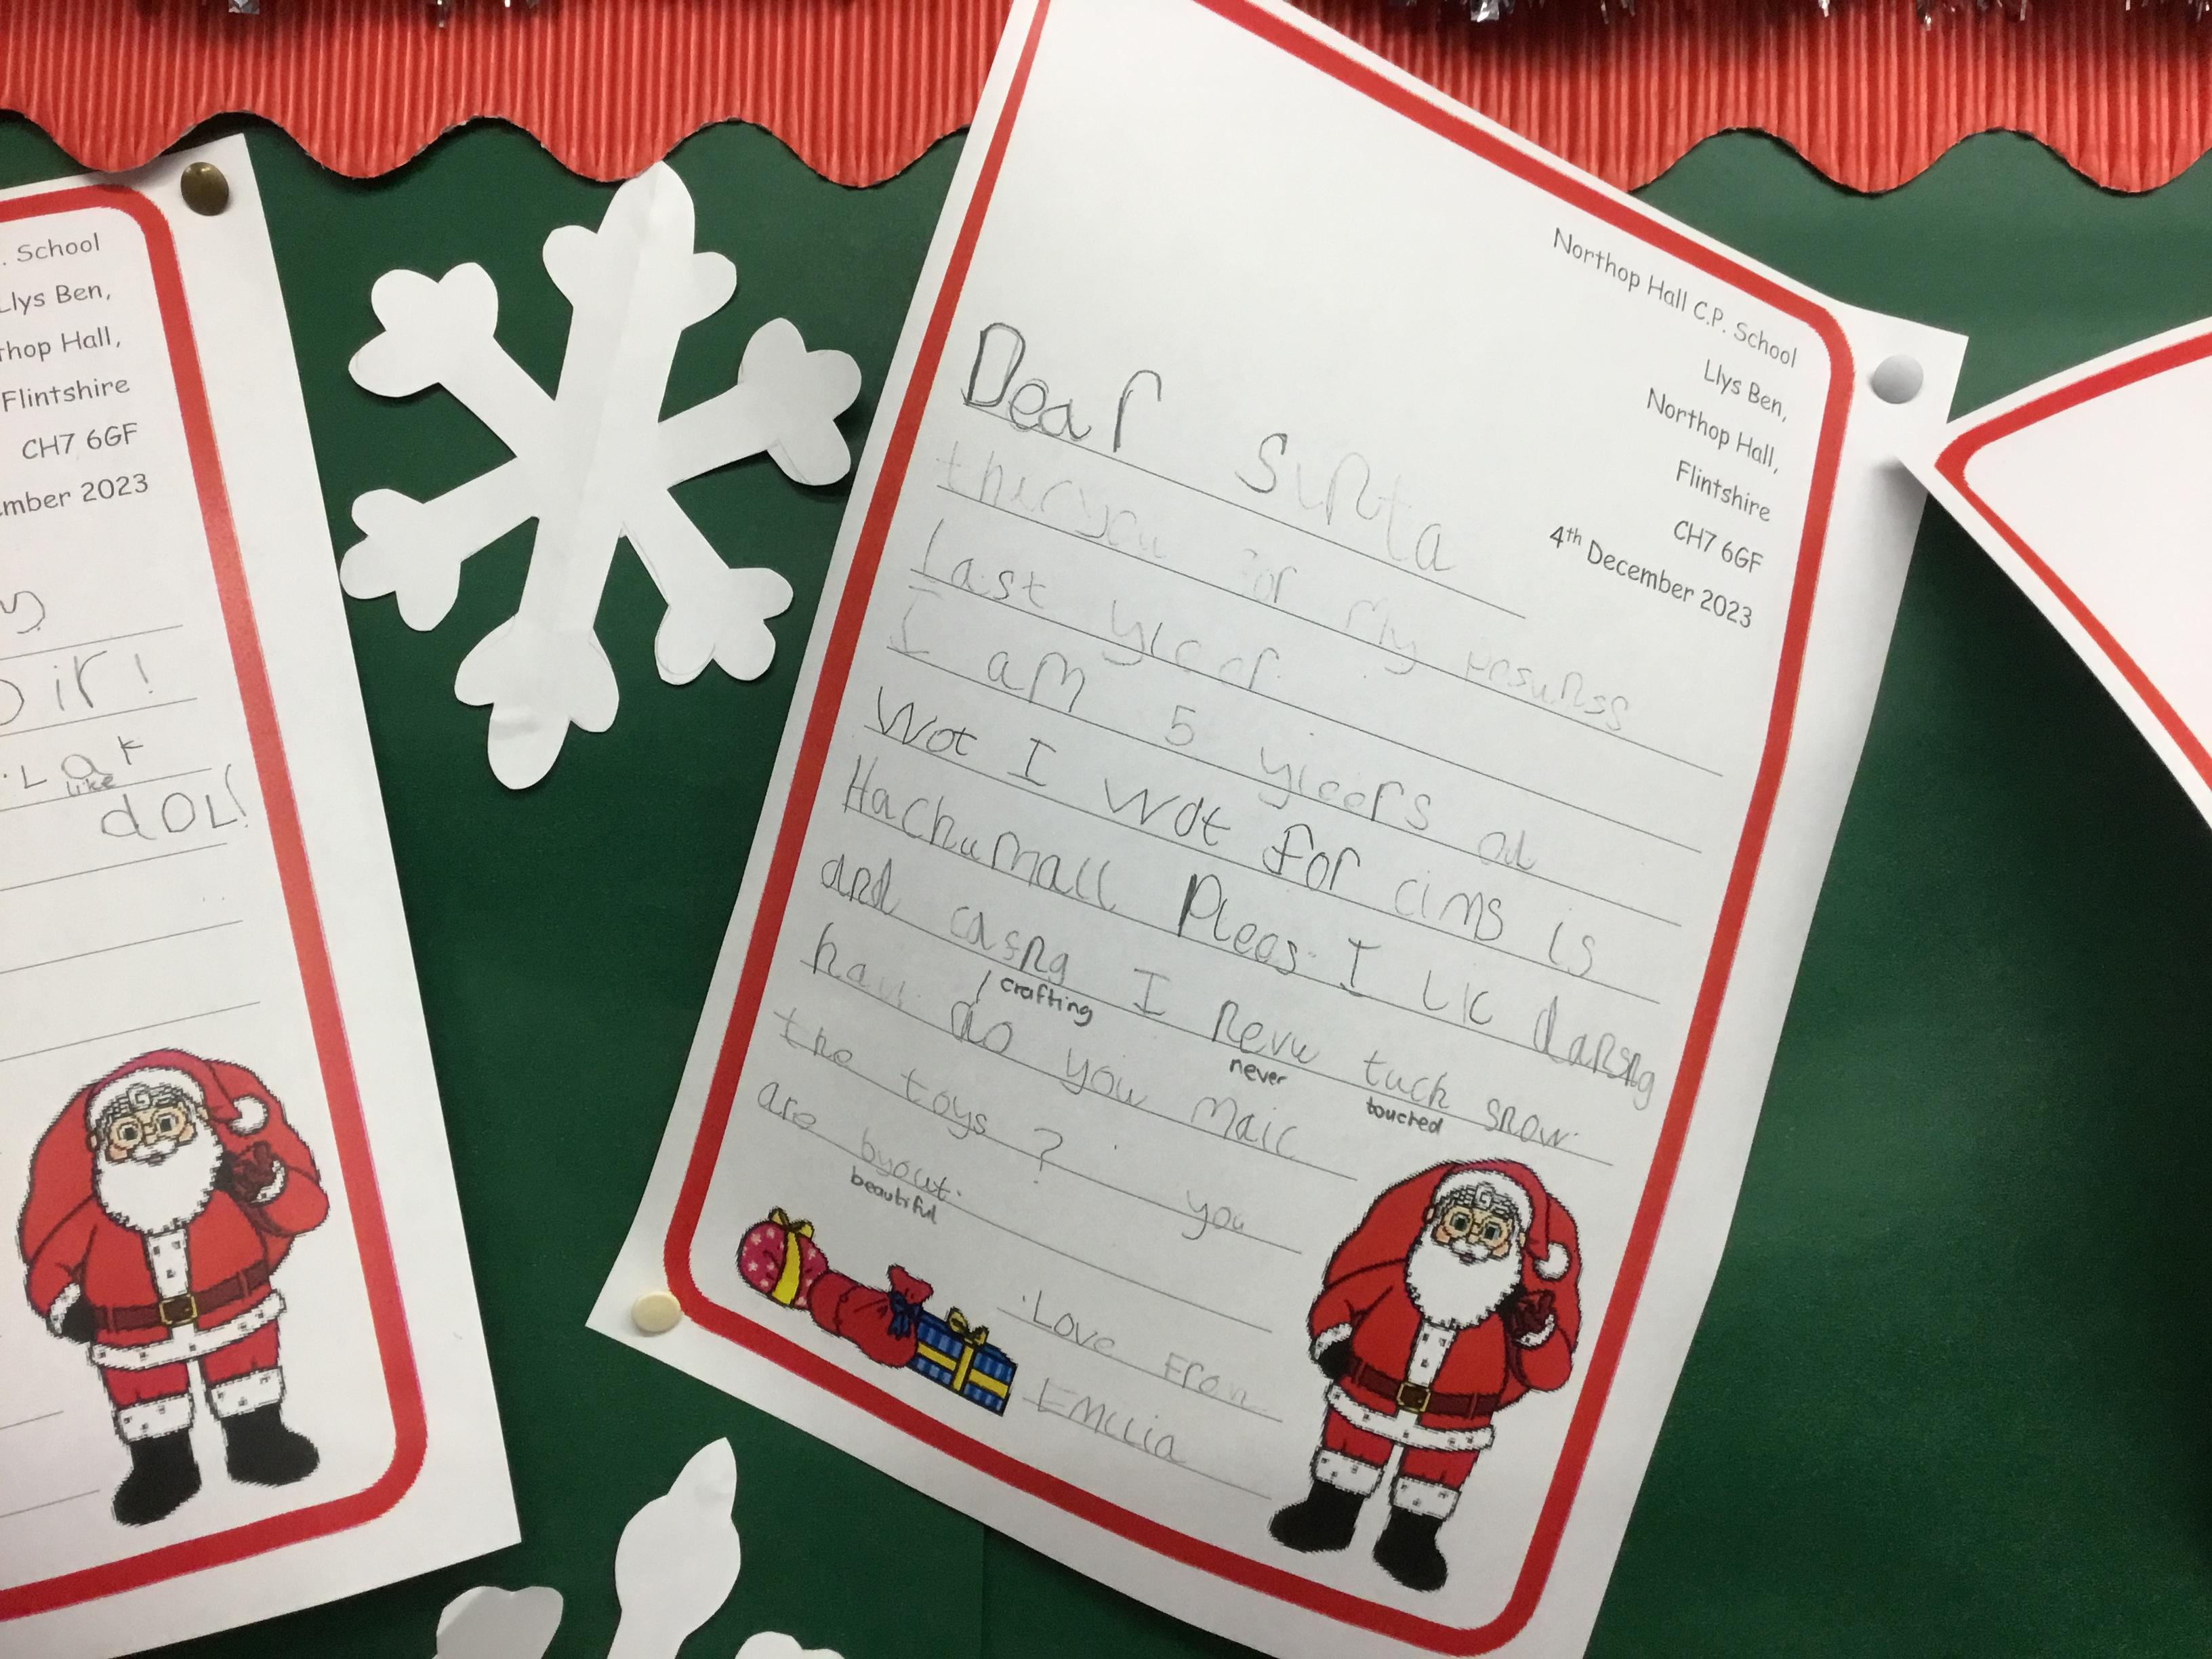 . School
Llys Ben,
thop Hall,
Flintshire
CH7 6GF
mber 2023
ir!
Lak
like
dOL!
Northop Hall C.P. School
Llys Ben,
Northop Hall,
Flintshire
CH7 6GF
4th December 2023
Dear Sinta
for My
last yieer
I am 5 yieers od
Wot I Wot for cims is
Hachumall Pleas. I Lic darsng
and casng I nevu tuck snow.
crafting never touched
haw do you Maic
the toys? you
are byout.
beautiful
Love From
Emilia